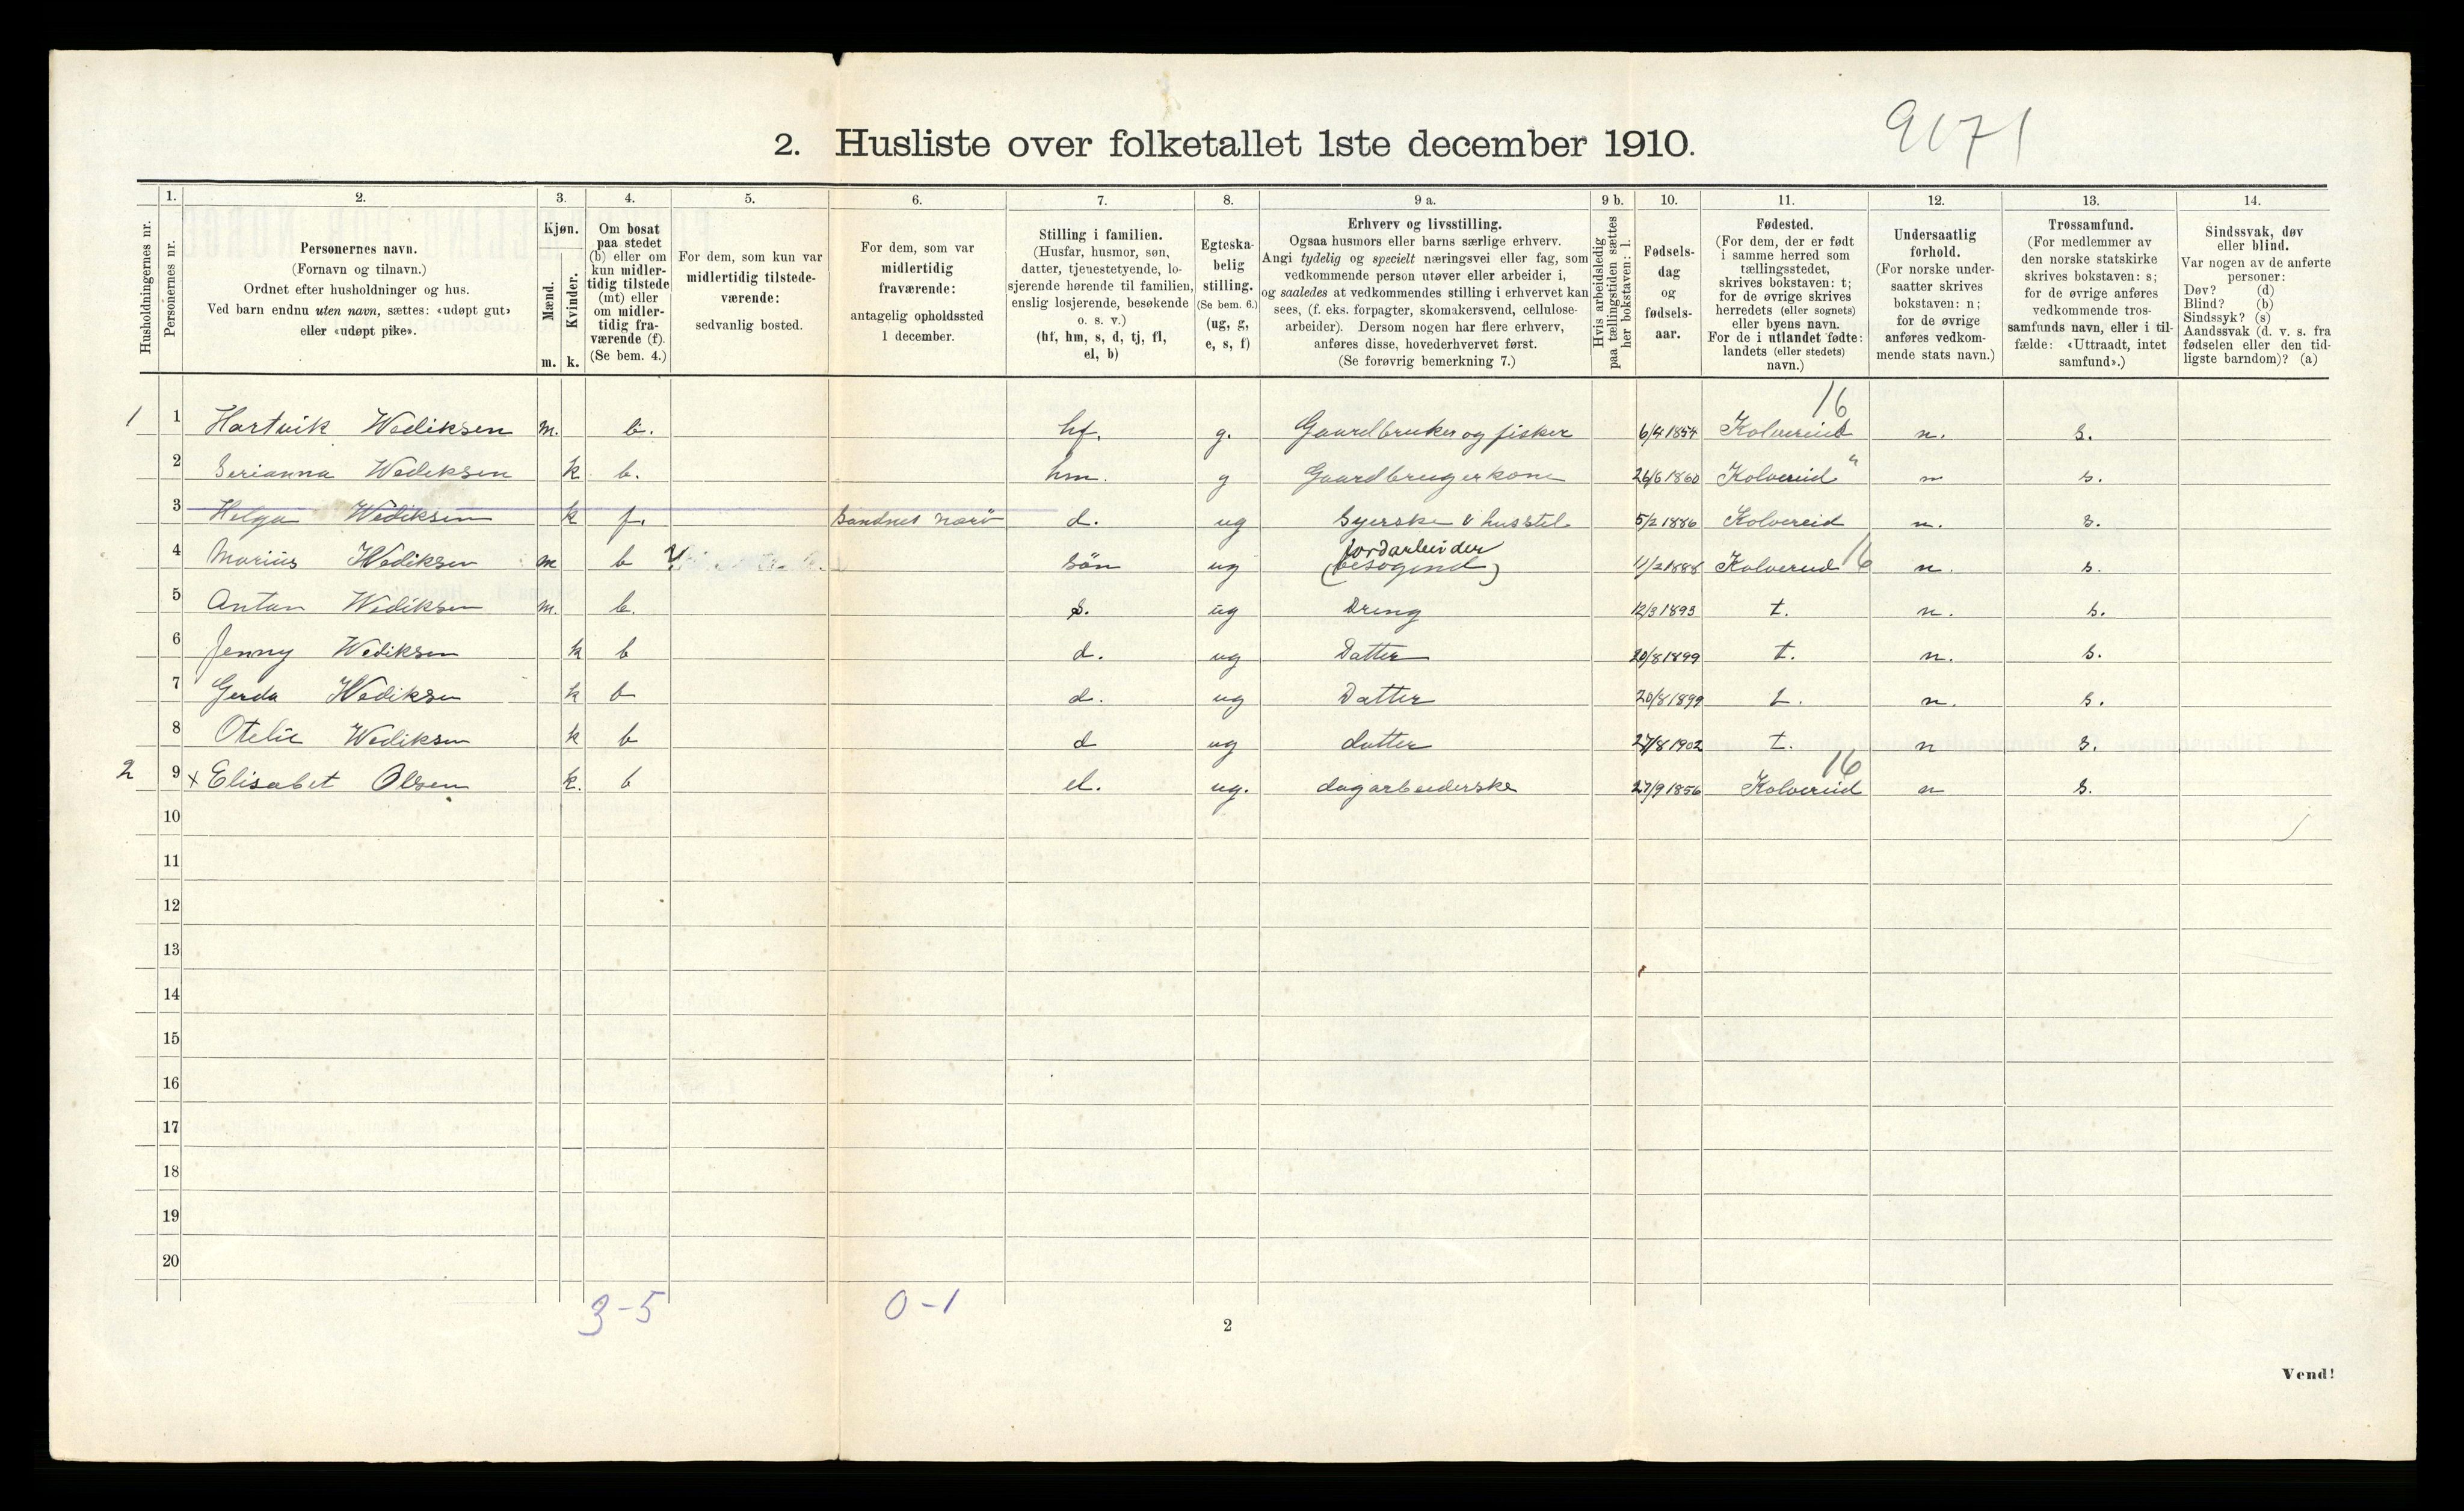 9171
2. Husliste over folketallet 1ste december 1910.
Husholdningernes nr.
1.
Personernes nr.
2.
Personernes navn.
(Fornavn og tilnavn.)
Ordnet efter husholdninger og hus.
Ved barn endnu uten navn, sættes: «udøpt gut»
eller «udøpt pike».
3.
Kjøn.
Mænd.
Kvinder.
m. k.
4.
Om bosat
paa stedet
(b) eller om
kun midler-
tidig tilstede
(mt) eller
om midler-
tidig fra-
værende (f).
(Se bem. 4.)
5.
For dem, som kun var
midlertidig tilstede-
værende:
sedvanlig bosted.
6.
For dem, som var
midlertidig
fraværende:
antagelig opholdssted
1 december.
7.
Stilling i familien.
(Husfar, husmor, søn,
datter, tjenestetyende, lo-
sjerende hørende til familien,
enslig losjerende, besøkende
o. s. v.)
(hf, hm, s, d, tj, fl,
el, b)
8.
Egteska-
belig
stilling.
(Se bem. 6.)
(ug, g,
e, s, f)
9 a.
Erhverv og livsstilling.
Ogsaa husmors eller barns særlige erhverv.
Angi tydelig og specielt næringsvei eller fag, som
vedkommende person utøver eller arbeider i,
og saaledes at vedkommendes stilling i erhvervet kan
sees, (f. eks. forpagter, skomakersvend, cellulose-
arbeider). Dersom nogen har flere erhverv,
anføres disse, hovederhvervet først.
(Se forøvrig bemerkning 7.)
9 b.
Hvis arbeidsledig
paa tællingstiden sættes
her bokstaven: l.
10.
Fødsels-
dag
og
fødsels-
aar.
11.
Fødested.
(For dem, der er født
i samme herred som
tællingsstedet,
skrives bokstaven: t;
for de øvrige skrives
herredets (eller sognets)
eller byens navn.
For de i utlandet fødte:
landets (eller stedets)
navn.)
12.
Undersaatlig
forhold.
(For norske under-
saatter skrives
bokstaven: n;
for de øvrige
anføres vedkom-
mende stats navn.)
13.
Trossamfund.
(For medlemmer av
den norske statskirke
skrives bokstaven: s;
for de øvrige anføres
vedkommende tros-
samfunds navn, eller i til-
fælde: «Uttraadt, intet
samfund».)
14.
Sindssvak, døv
eller blind.
Var nogen av de anførte
personer:
Døv? (d)
Blind? (b)
Sindssyk? (s)
Aandssvak (d. v. s. fra
fødselen eller den tid-
ligste barndom)? (a)
1 1 Hartvik Wediksen m. b. hf. g. Gaardbruker og fisker 6/4 1854 Kolvereid 16 n. s.
2 Serianna Wediksen k b. hm. g Gaardbrugerkone 26/6 1860 Kolvereid " n s.
3 Helga Wediksen k f. Sandnes Nærö d. ug Syerske & husstel 5/2 1886 Kolvereid n. s.
4 Marius Wediksen m b sön ug jordarbeider (besögend) 11/2 1888 Kolvereid 16 n. s.
5 Antan Wediksen m. b. s. ug Dreng 12/3 1893 t. n. s.
6 Jenny Wediksen k b d. ug Datter 20/8 1899 t. n. s.
7 Gerda Wediksen k b d. ug Datter 20/8 1899 t. n. s.
8 Otelie Wediksen k b d ug datter 27/8 1902 t. n s.
2 9 x Elisabet Olsen k. b el. ug. dagarbeiderske 27/9 1856 Kolvereid 16 n s.
10
11
12
13
14
15
16
17
18
19
20
3-5 0-1
2
Vend!